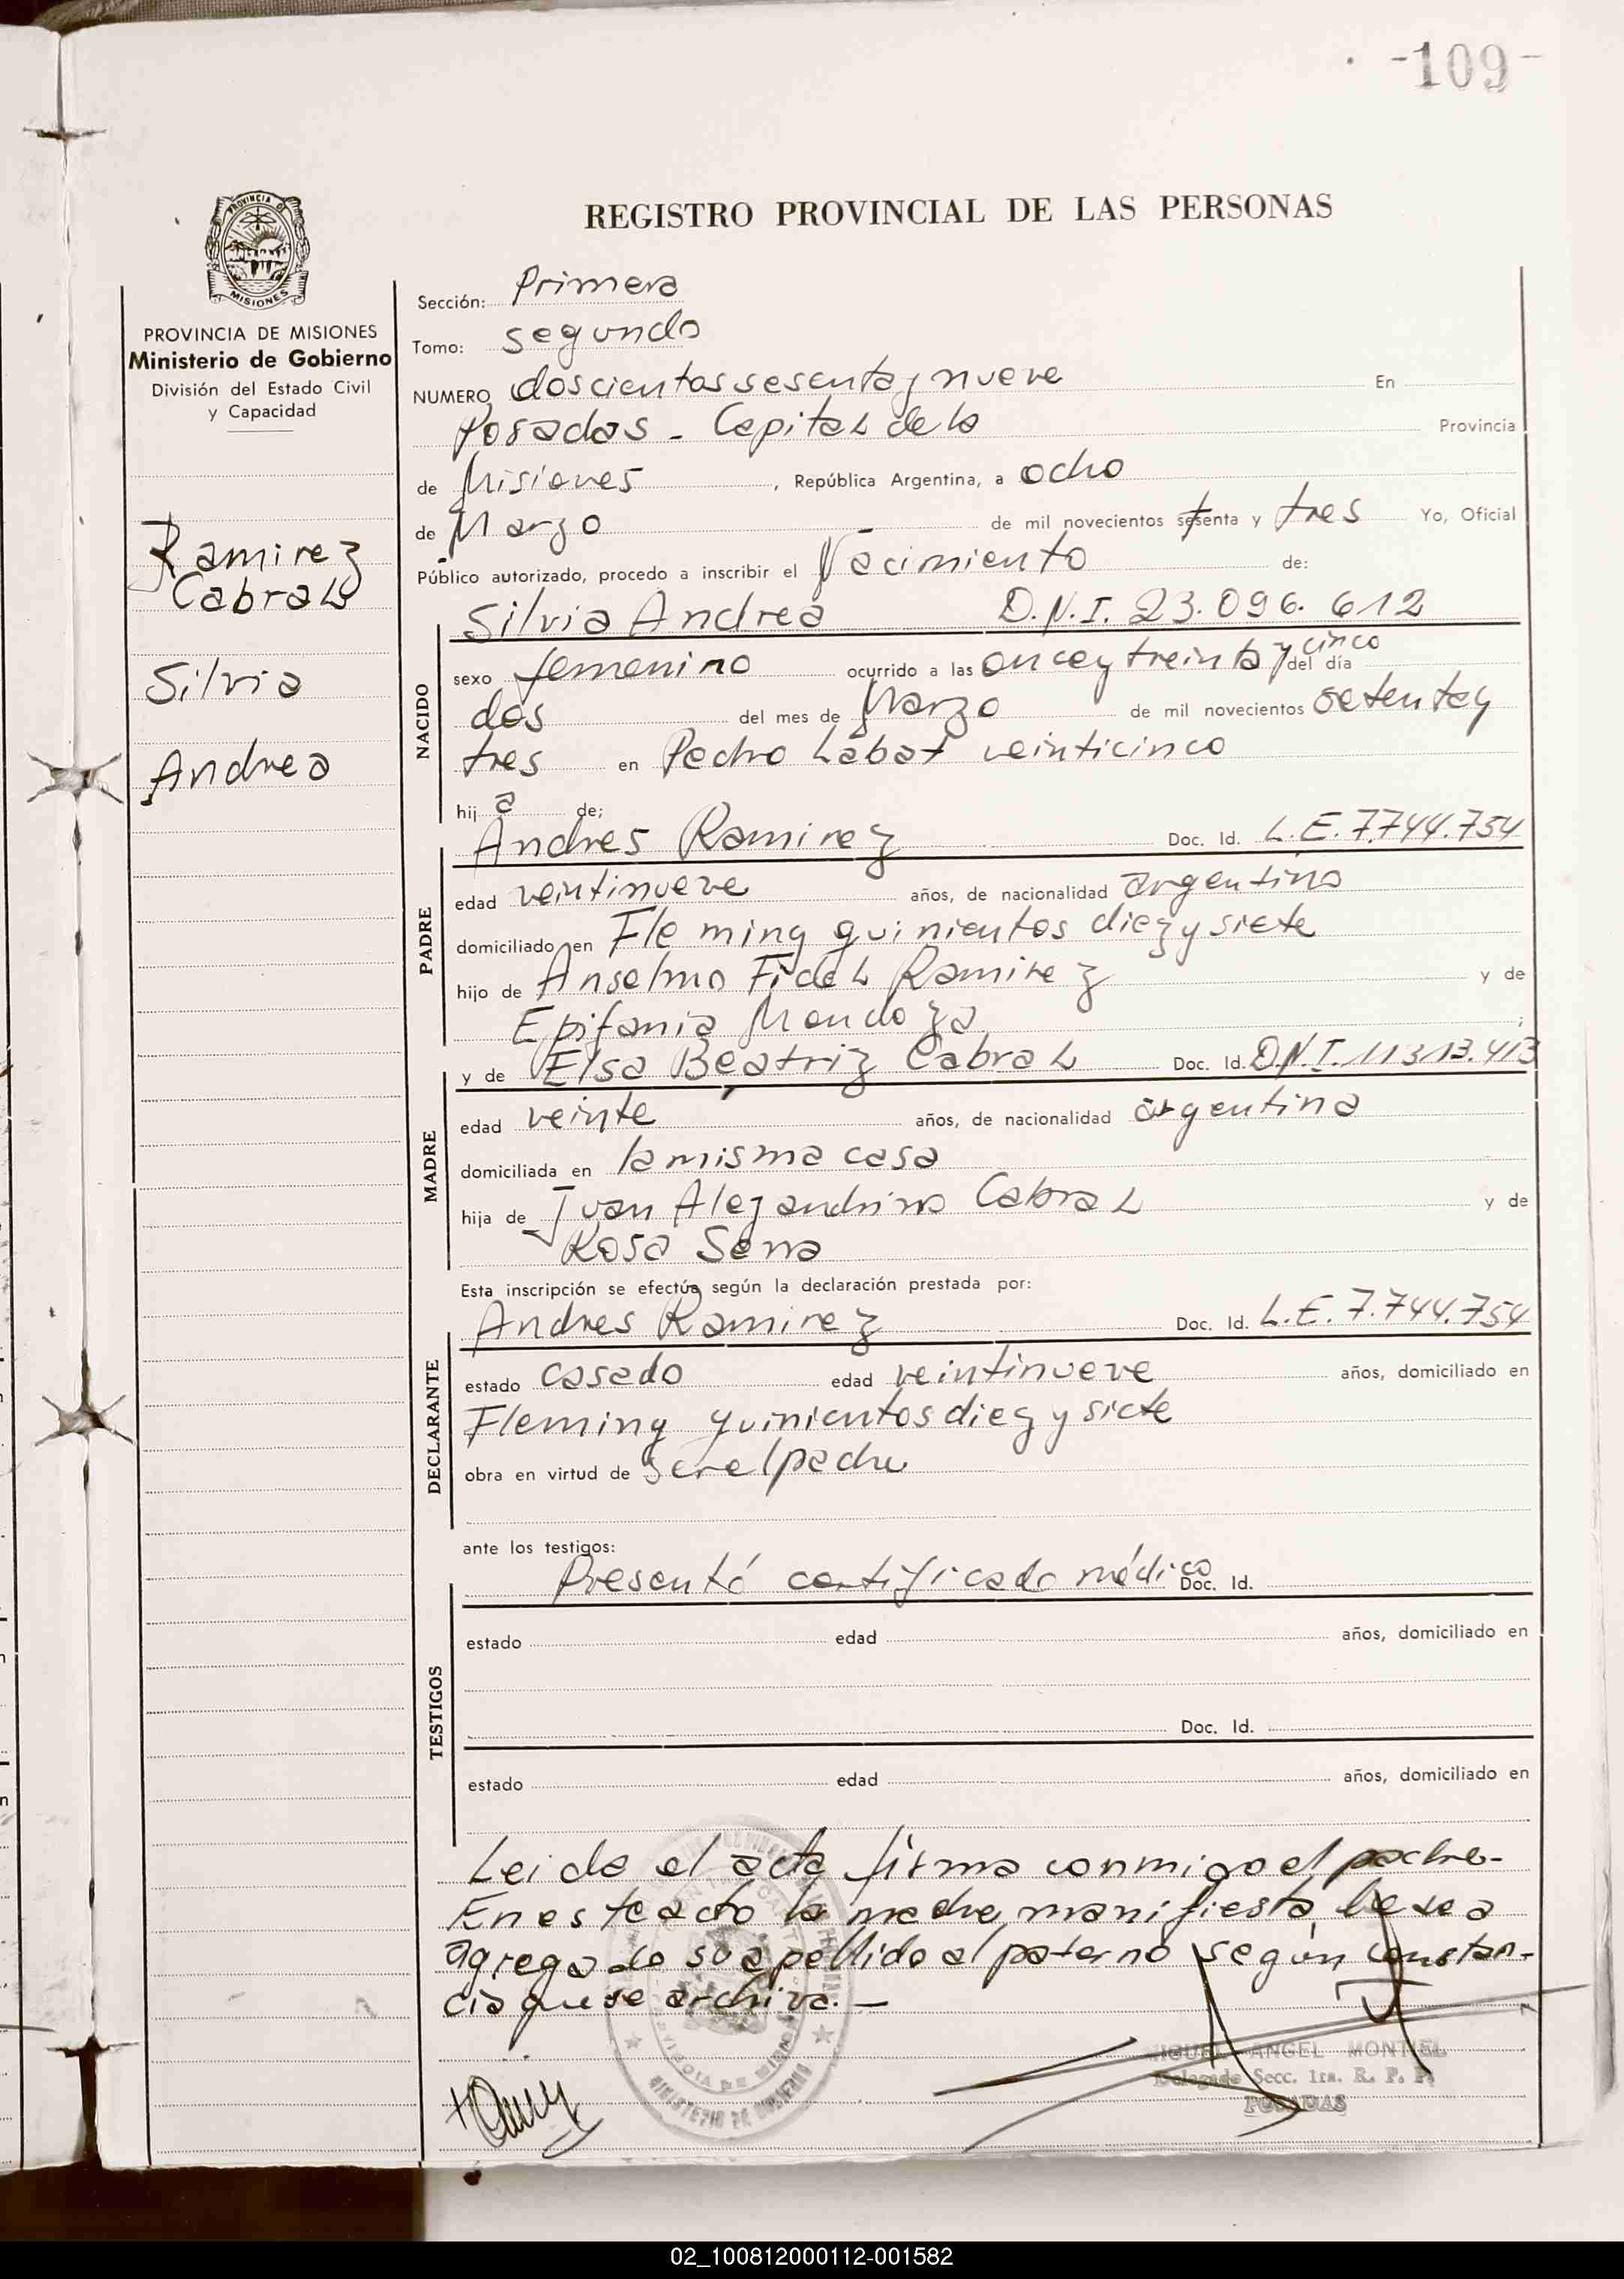 -109-
PROVINCIA DE
MISIONES
PROVINCIA DE MISIONES
Ministerio de Gobierno
División del Estado Civil
y Capacidad
Ramirez
Cabral
Silvia
Andrea
REGISTRO PROVINCIAL DE LAS PERSONAS
Sección: Primera
Tomo: segundo
NUMERO doscientos sesenta y nueve En
Posadas - Capital de la Provincia
de Misiones, República Argentina, a ocho
de Marzo de mil novecientos setenta y tres Yo, Oficial
Público autorizado, procedo a inscribir el Nacimiento de:
NACIDO
Silvia Andrea D.N.I. 23.096.612
sexo femenino ocurrido a las once y treinta y cinco del día
dos del mes de Marzo de mil novecientos setenta y
tres en Pedro Labat veinticinco
hij a de;
PADRE
Andres Ramirez Doc. Id. L.E. 7.744.754
edad veintinueve años, de nacionalidad argentino
domiciliado en Fleming quinientos diez y siete
hijo de Anselmo Fidel Ramirez y de
Epifania Mendoza ;
MADRE
y de Elsa Beatriz Cabral Doc. Id. D.N.I. 11.313.413
edad veinte años, de nacionalidad argentina
domiciliada en la misma casa
hija de Juan Alejandrino Cabral y de
Rosa Sena
Esta inscripción se efectúa según la declaración prestada por:
DECLARANTE
Andres Ramirez Doc. Id. L.E. 7.744.754
estado casado edad veintinueve años, domiciliado en
Fleming quinientos diez y siete
obra en virtud de ser el padre
ante los testigos:
TESTIGOS
Presentó certificado médico Doc. Id.
estado edad años, domiciliado en
Doc. Id.
estado edad años, domiciliado en
Leida el acta firma conmigo el padre-
En este acto la madre manifiesta sea
agregado su apellido al paterno según constan-
cia que se archiva.-
MINISTERIO DE GOBIERNO
MIGUEL ANGEL MONTIEL
Delegado Secc. 1ra. R. P. P.
POSADAS
02_100812000112-001582